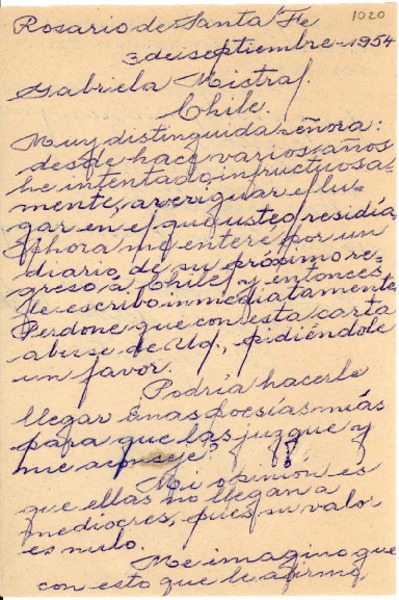 1020
Rosario de Santa Fe
3 de septiembre-1954
Gabriela Mistral.
Chile.
Muy distinguida señora:
desde hace varios años
he intentado infructuosa-
mente, averiguar el lu-
gar en el que usted residía.
Ahora me enteré por un
diario, de su próximo re-
greso a Chile, y entonces
le escribo inmediatamente.
Perdone que con esta carta
abuse de Ud., pidiéndole
un favor.
Podría hacerle
llegar unas poesías mías
para que las juzgue y
me aconseje?
Mi opinión es
que ellas no llegan a
mediocres, pues su valor
es nulo.
Me imagino que
con esto que le afirmo,